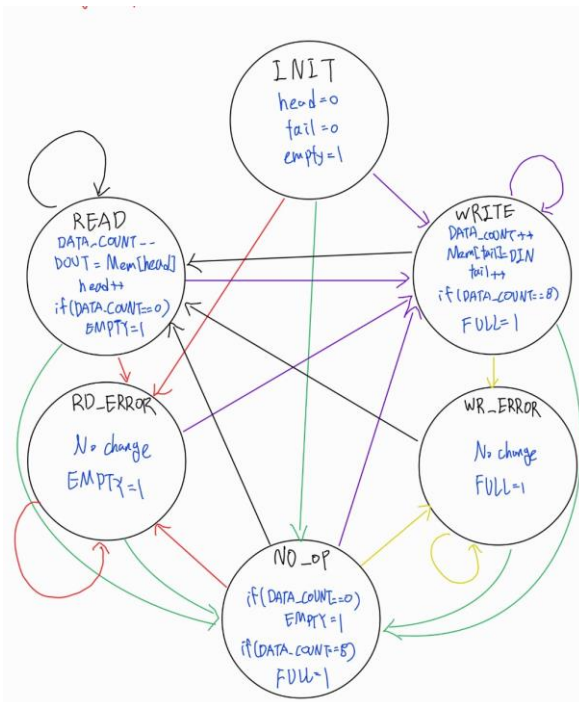 INIT
head=0
tail=0
empty=1
READ
DATA_COUNT--
DOUT = Mem[head]
head++
if(DATA.COUNT==0)
EMPTY=1
WRITE
DATA_COUNT++
Mem[tail]=DIN
tail++
if(DATA_COUNT==8)
FULL=1
RD_ERROR
No change
EMPTY=1
WR_ERROR
No change
FULL=1
NO_OP
if(DATA_COUNT==0)
EMPTY=1
if(DATA-COUNT==8)
FULL=1